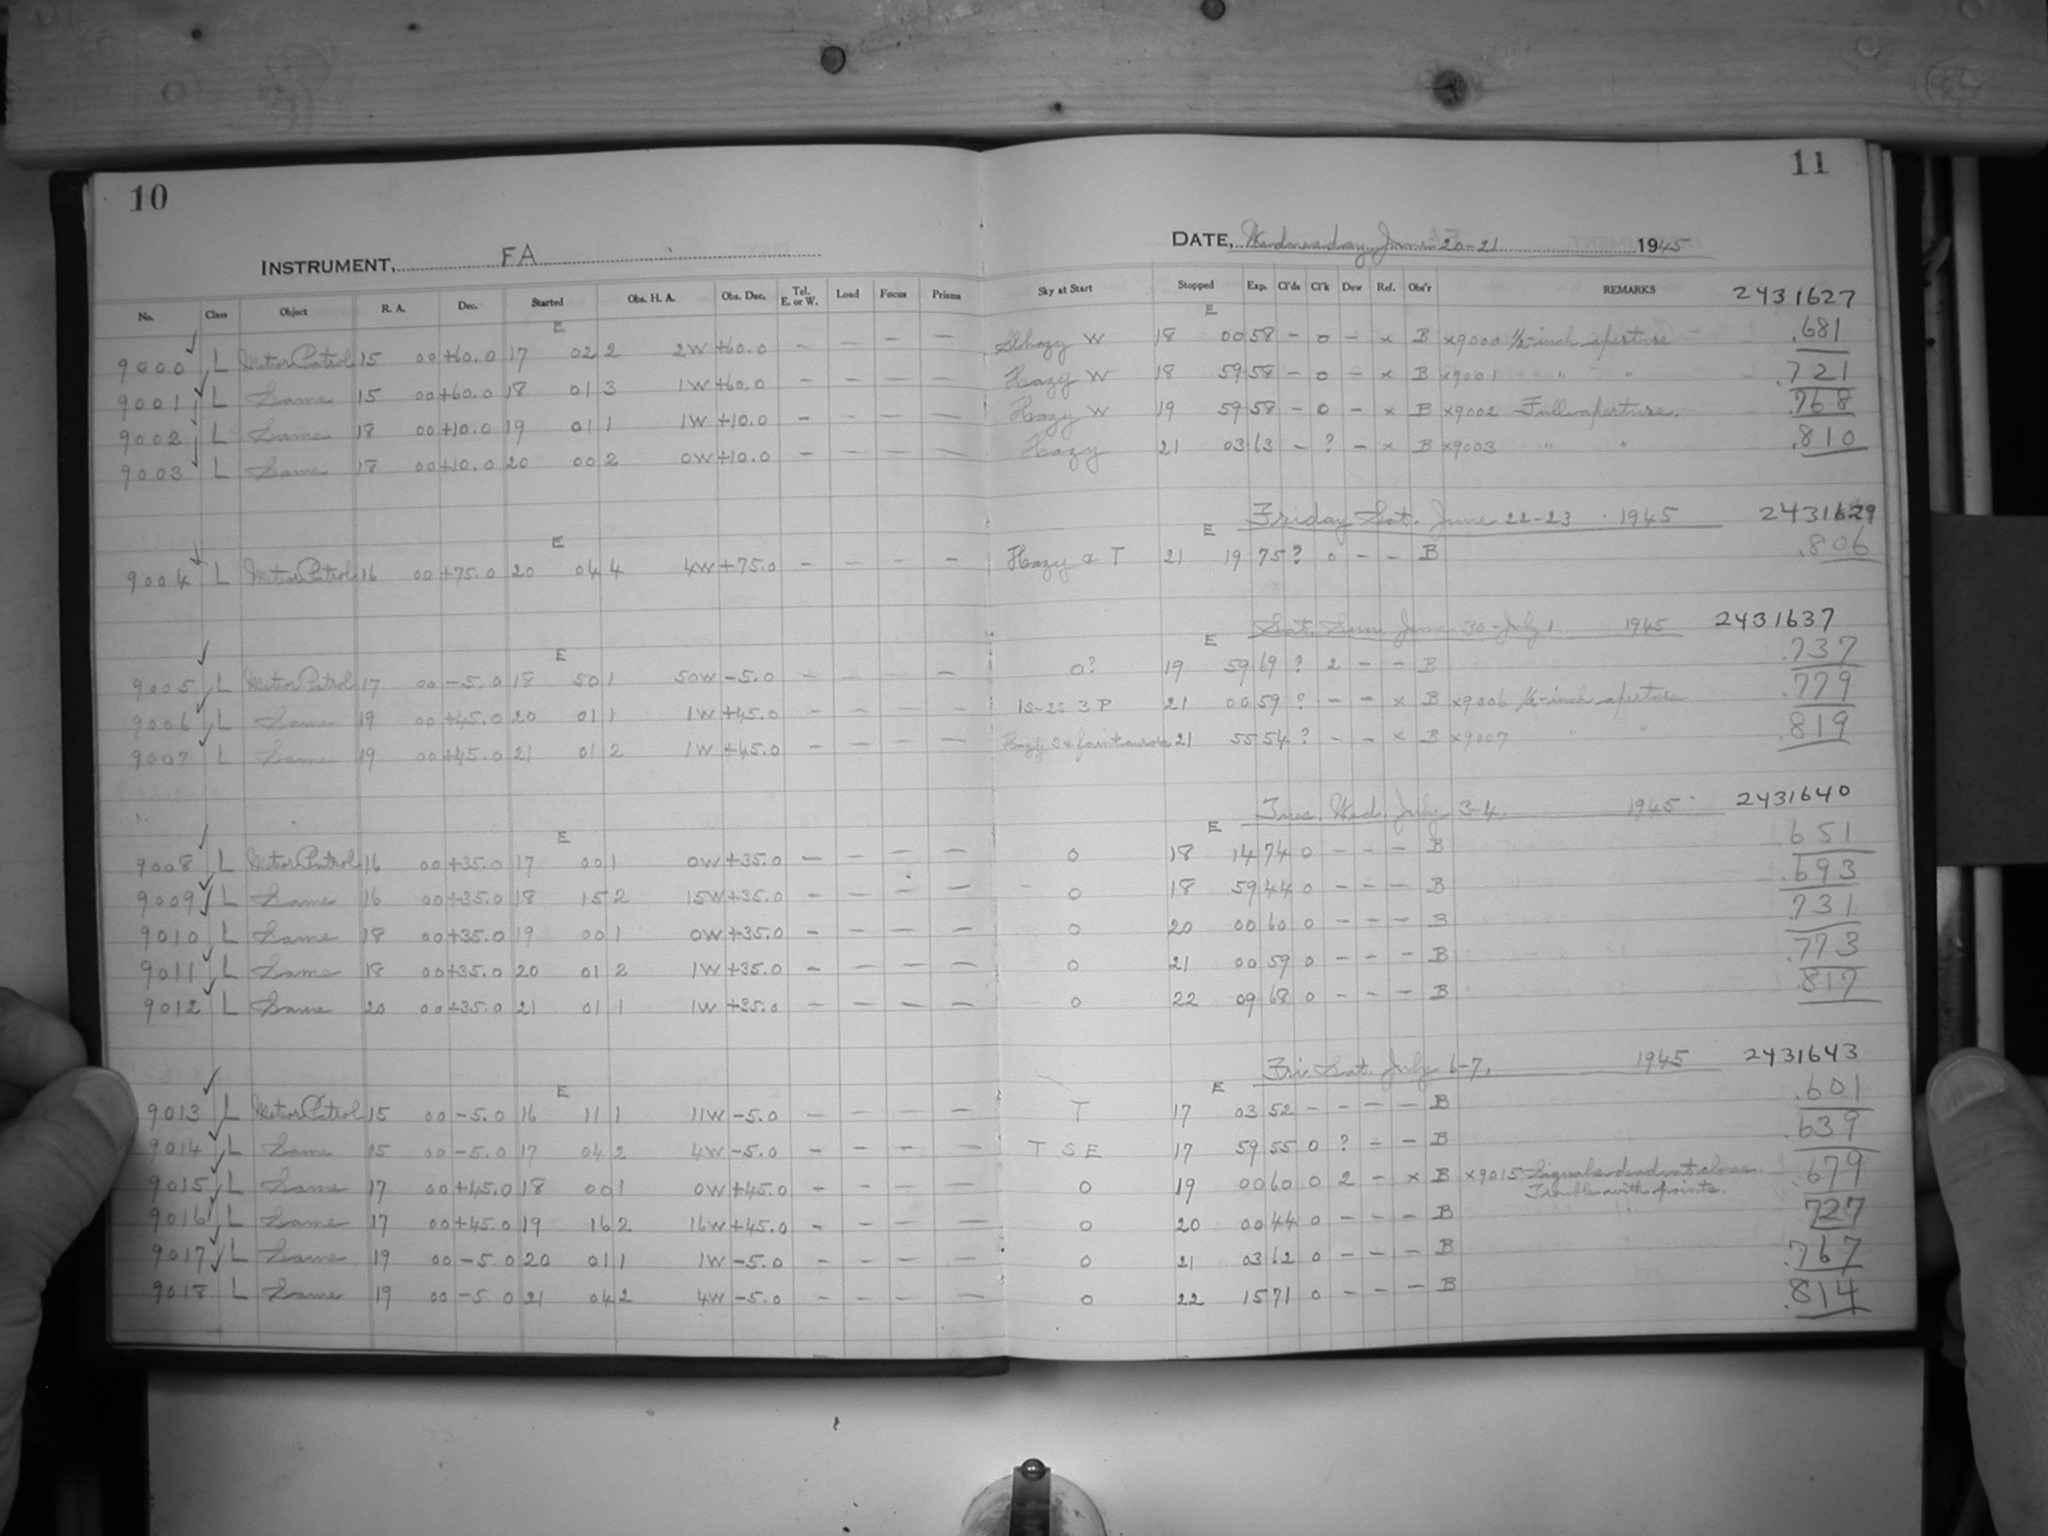 10
11
INSTRUMENT, FA
DATE, Wednesday June 20-21 1945
No. Class Object R. A. Dec. Started Obs. H. A. Obs. Dec. Tel. E. or W. Load Focus Prisms Sky at Start Stopped Exp. Cl'ds Cl'k Dew Ref. Obs'r REMARKS 2431627
E E
9000 L Meteor Patrol 15 00 +60.0 17 02 2 2W +60.0 – – – – Slhazy W 18 00 58 – 0 – x B x9000 ½-inch aperture .681
9001 L Same 15 00 +60.0 18 01 3 1W +60.0 – – – – Hazy W 18 59 58 – 0 – x B x9001 " " .721
9002 L Same 18 00 +10.0 19 01 1 1W +10.0 – – – – Hazy W 19 59 58 – 0 – x B x9002 Full aperture. .768
9003 L Same 18 00 +10.0 20 00 2 0W +10.0 – – – – Hazy 21 03 63 – ? – x B x9003 " " .810
Friday Sat. June 22-23 1945 2431629
E E
9004 L Meteor Patrol 16 00 +75.0 20 04 4 4W +75.0 – – – – Hazy a T 21 19 75 ? 0 – – B .806
Sat. Sun June 30-July 1 1945 2431637
E E
9005 L Meteor Patrol 17 00 –5.0 18 50 1 50W –5.0 – – – – 0? 19 59 69 ? 2 – – B .737
9006 L Same 19 00 +45.0 20 01 1 1W +45.0 – – – – 1S-2S 3 P 21 00 59 ? – – x B x9006 ½-inch aperture .779
9007 L Same 19 00 +45.0 21 01 2 1W +45.0 – – – – Hazy S & faint aurora 21 55 54 ? – – x B x9007 " " .819
Tues. Wed. July 3-4. 1945 2431640
E E
9008 L Meteor Patrol 16 00 +35.0 17 00 1 0W +35.0 – – – – 0 18 14 74 0 – – – B .651
9009 L Same 16 00 +35.0 18 15 2 15W +35.0 – – – – 0 18 59 44 0 – – – B .693
9010 L Same 18 00 +35.0 19 00 1 0W +35.0 – – – – 0 20 00 60 0 – – – B .731
9011 L Same 18 00 +35.0 20 01 2 1W +35.0 – – – – 0 21 00 59 0 – – – B .773
9012 L Same 20 00 +35.0 21 01 1 1W +35.0 – – – – 0 22 09 68 0 – – – B .817
Fri. Sat. July 6-7, 1945 2431643
E E
9013 L Meteor Patrol 15 00 –5.0 16 11 1 11W –5.0 – – – – T 17 03 52 – – – – B .601
9014 L Same 15 00 –5.0 17 04 2 4W –5.0 – – – – T S E 17 59 55 0 ? – – B .639
9015 L Same 17 00 +45.0 18 00 1 0W +45.0 – – – – 0 19 00 60 0 2 – x B x9015 Signals dead at close. .679
Trouble with points.
9016 L Same 17 00 +45.0 19 16 2 16W +45.0 – – – – 0 20 00 44 0 – – – B .727
9017 L Same 19 00 –5.0 20 01 1 1W –5.0 – – – – 0 21 03 62 0 – – – B .767
9018 L Same 19 00 –5.0 21 04 2 4W –5.0 – – – – 0 22 15 71 0 – – – B .814